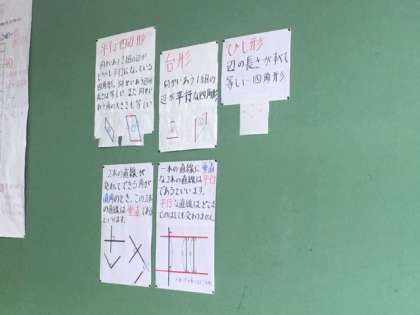 平行四辺形
向かいあう2組の辺が
どちらも平行になっている
四角形。向かいあう辺の
長さは等しい。また向かい
あう角の大きさも等しい
台形
向かいあう1組の
辺が平行な四角形
ひし形
辺の長さがすべて
等しい四角形
2本の直線が
交わってできる角が
直角のとき、この2本
の直線は垂直であると
いいます。
一本の直線に垂直
な2本の直線は平行
であるといいます。
平行な直線はどこま
でのばしても交わりません。